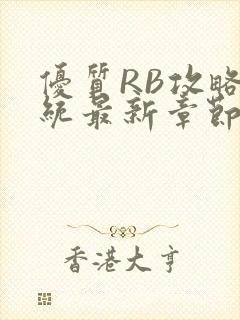 優質RB攻略
統最新章節
香港大亨